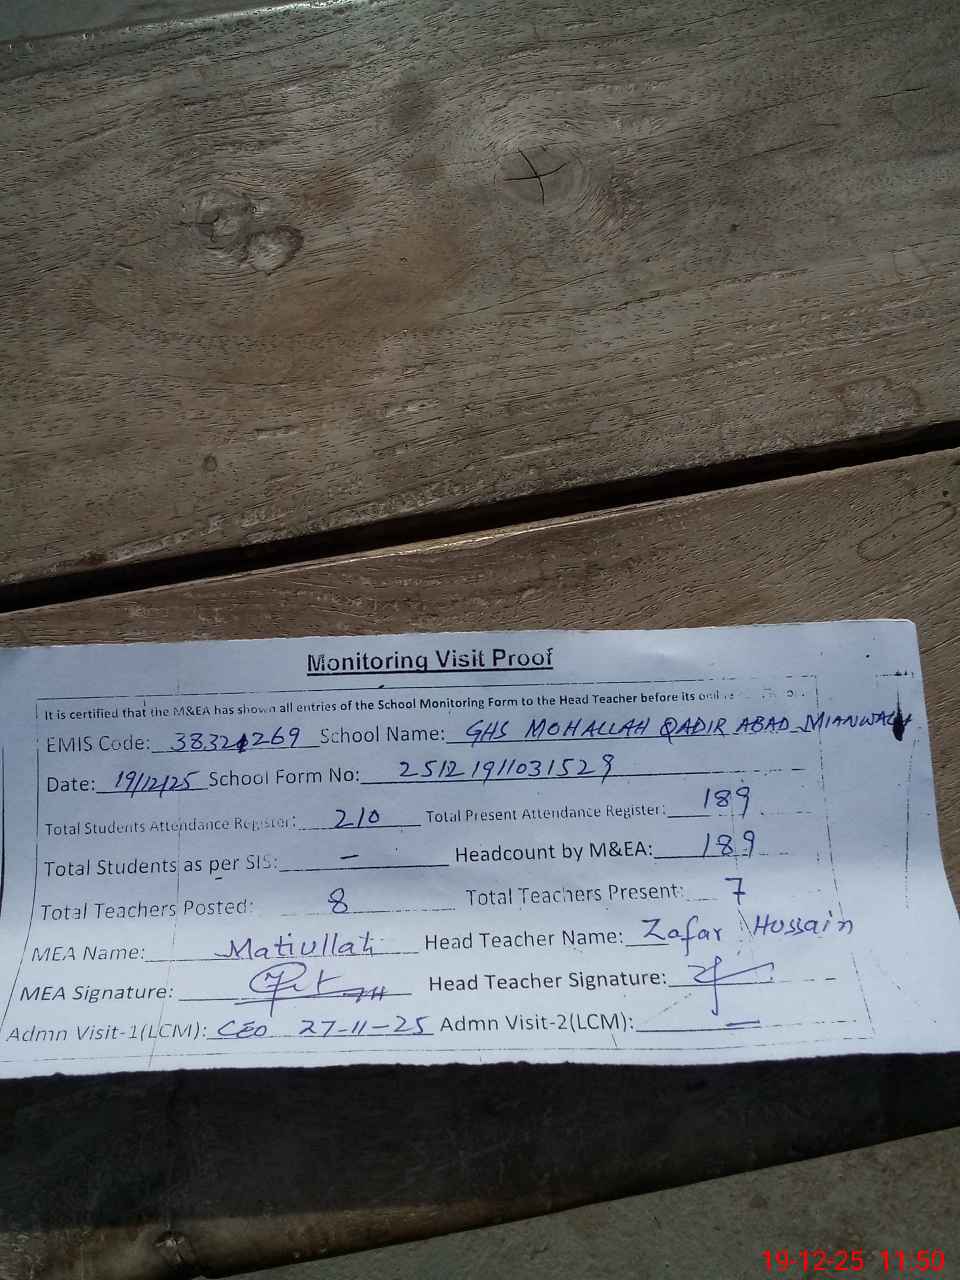 Monitoring Visit Proof
It is certified that the M&EA has shown all entries of the School Monitoring Form to the Head Teacher before its
EMIS Code: 38321269 School Name: GHS MOHALLAH QADIR ABAD MIANWALI
Date: 19/12/25 School Form No: 25121911031529
Total Students Attendance Register: 210 Total Present Attendance Register: 189
Total Students as per SIS: — Headcount by M&EA: 189
Total Teachers Posted: 8 Total Teachers Present: 7
MEA Name: Matiullah Head Teacher Name: Zafar Hussain
MEA Signature: Head Teacher Signature:
Admn Visit-1(LCM): CEO 27-11-25 Admn Visit-2(LCM): —
19-12-25 11:50